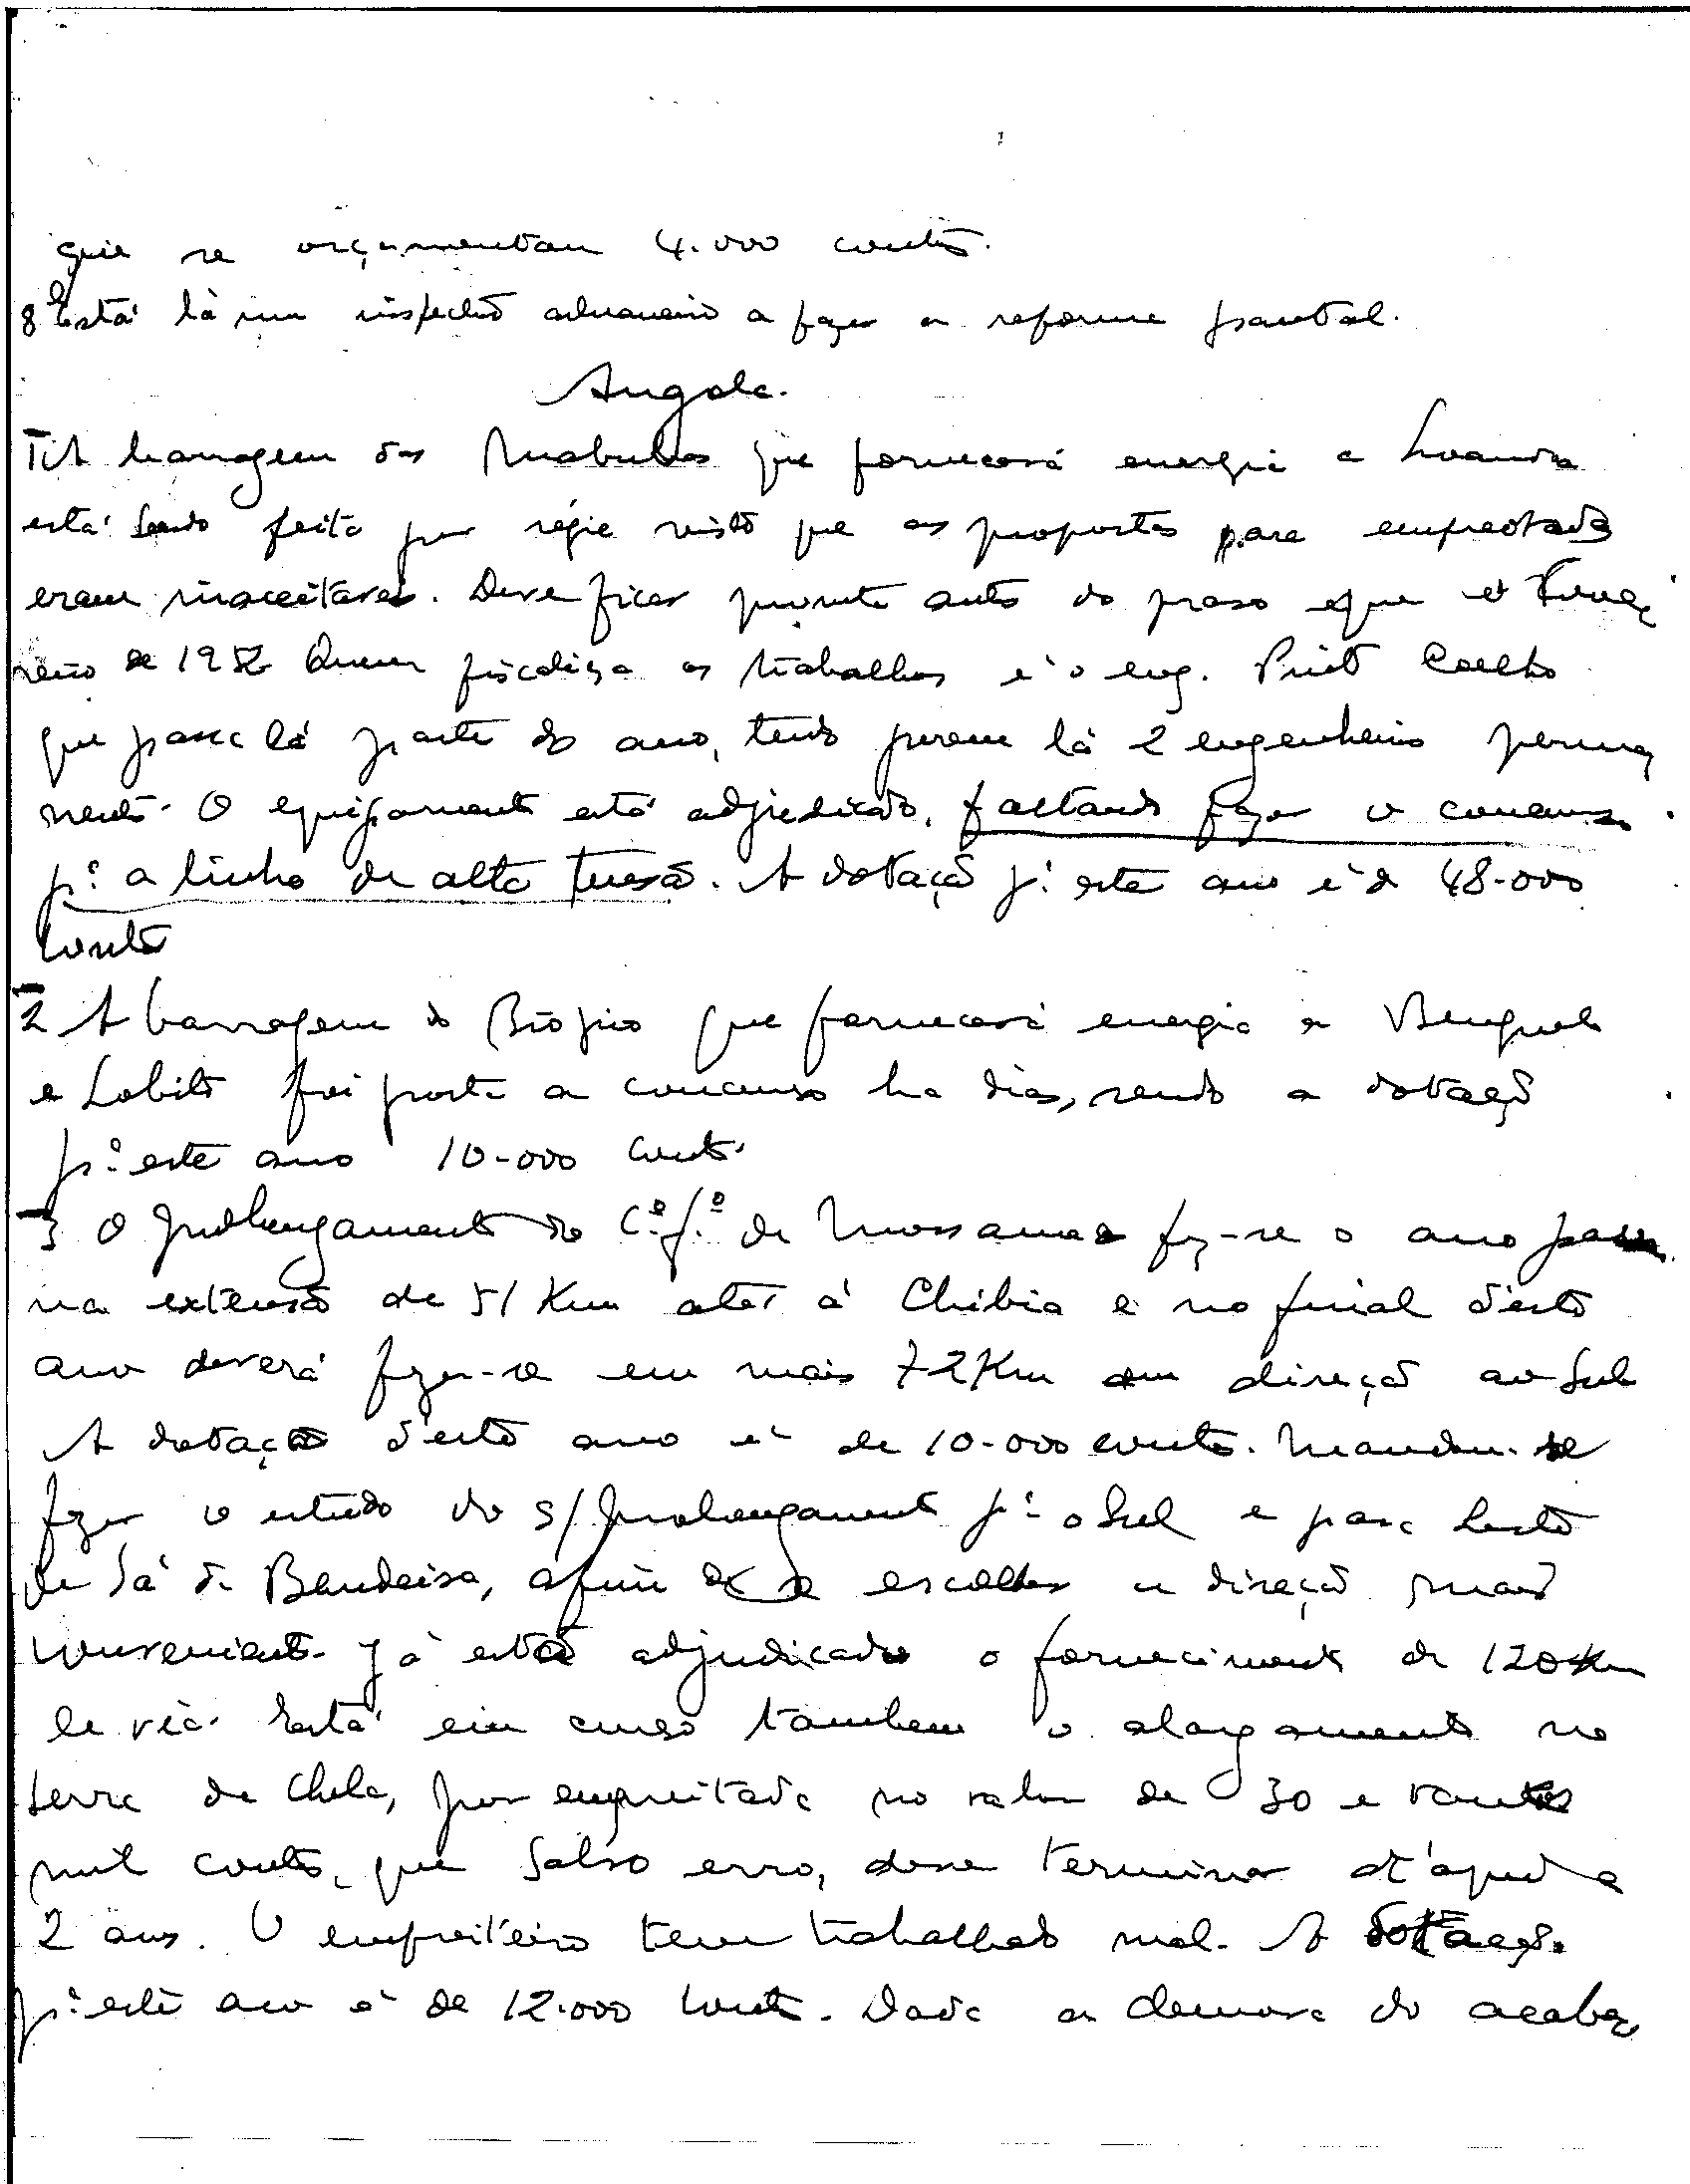 que se orçamentam 4.000 contos.
8º Está lá um inspector aduaneiro a fazer a reforma pautal.
Angola.
1 A barragem das Mabubas que fornecerá energia a Luanda
está sendo feita por régie visto que as propostas para empreitada
eram inaceitaveis. Deve ficar pronta antes do praso que é
de 1952 Quem fiscaliza os trabalhos é o eng. Pinto Coelho
que passa lá parte do ano, tendo porem lá 2 engenheiros perma
nentes. O equipamento está adjudicado, faltando fazer o concurso
pª a linha de alta tensão. A dotação pª este ano é de 48.000
contos
2 A barragem do Biópio que fornecerá energia a Benguela
e Lobito foi posta a concurso ha dias, sendo a dotação
pª este ano 10.000 contos.
3 O prolongamento do Cº fº de Mossamedes fez-se o ano passado
na extensão de 51 Km até á Chibia e no final d'este
ano deverá fazer-se em mais 72 Km em direção ao Sul
A dotação d'este ano é de 10.000 contos. Mandou-se
fazer o estudo do s/ prolongamento pª o Sul e para Leste
de Sá da Bandeira, afim de se escolher a direção mais
conveniente. Já está adjudicado o fornecimento de 120 Km
de via. Está em curso tambem o alargamento na
serra da Chela, por empreitada no valor de 30 e tantos
mil contos, que salvo erro, deve terminar d'aqui a
2 anos. O empreiteiro tem trabalhado mal. A dotação
pª este ano é de 12.000 contos. Dada a demora do acaba